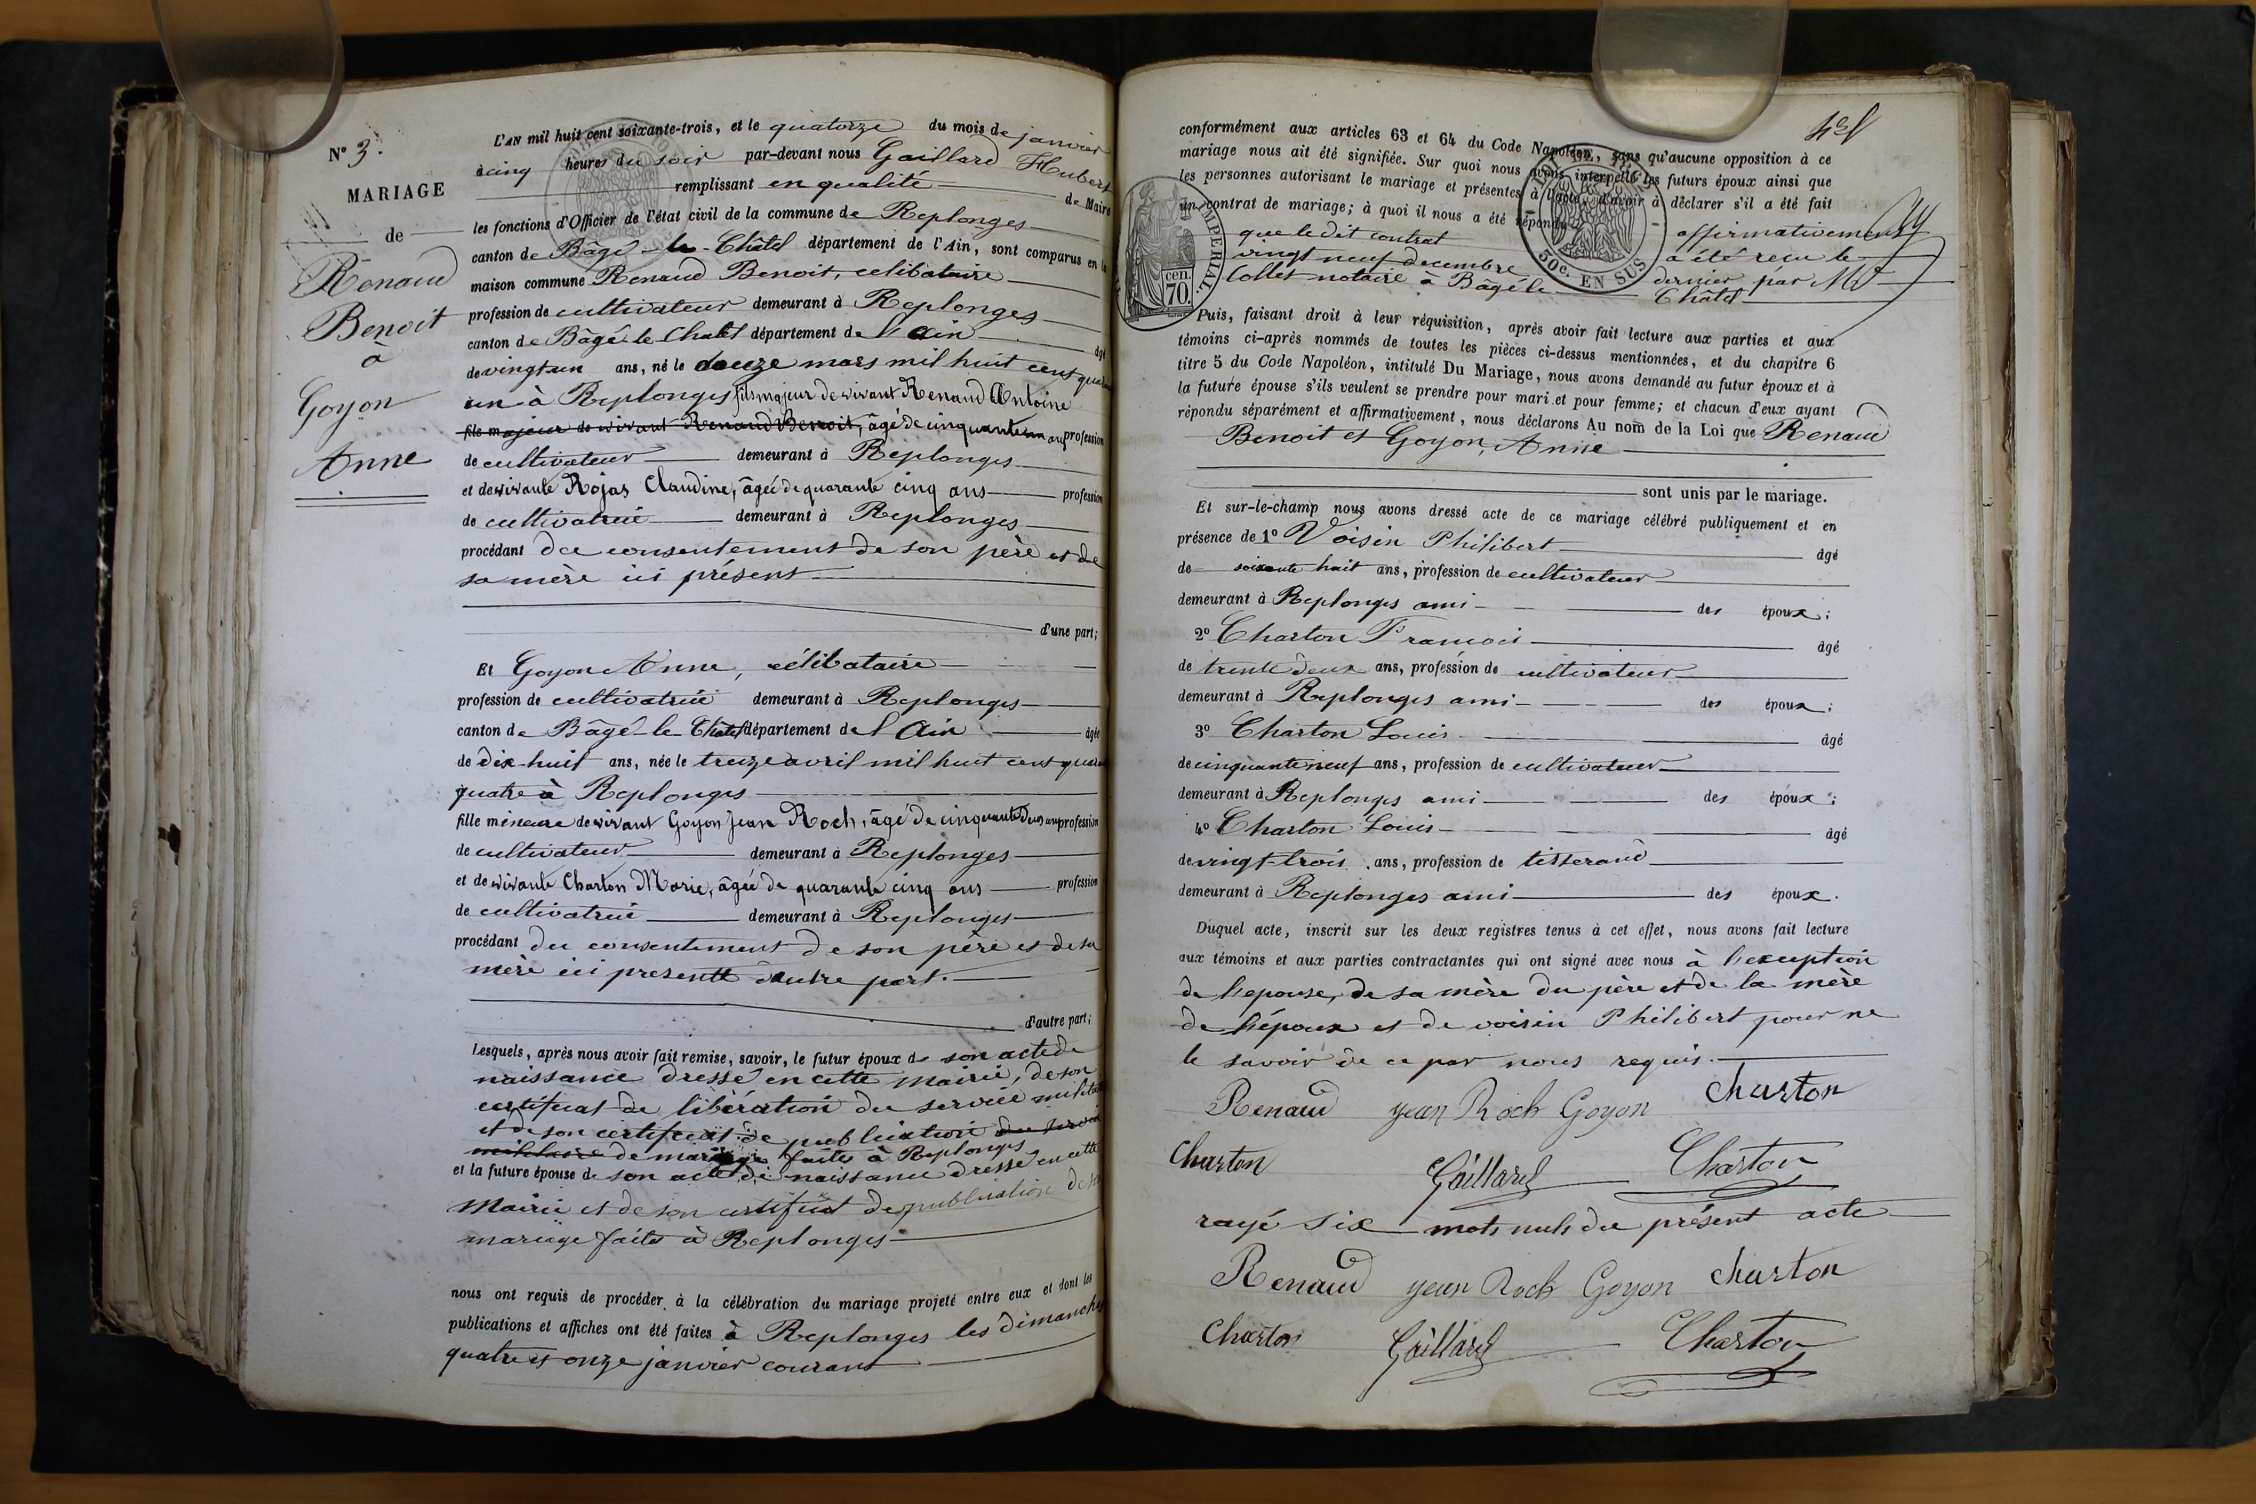 N° 3.
MARIAGE
de
Renaud
Benoit
à
Goyon
Anne
L'AN mil huit cent soixante-trois, et le quatorze du mois de janvier
à cinq heures du soir par-devant nous Gaillard Hubert
remplissant en qualité de Maire
les fonctions d'Officier de l'état civil de la commune de Replonges
canton de Bâgé-le-Châtel département de l'Ain, sont comparus en la
maison commune Renaud Benoit, celibataire
profession de cultivateur demeurant à Replonges
canton de Bâgé-le-Chatel département de l'Ain âgé
de vingt-un ans, né le douze mars mil huit cent quarante
un à Replonges fils majeur de vivant Renaud Antoine
fils majeur de vivant Renaud Benoit, âgé de cinquante un ans profession
de cultivateur demeurant à Replonges
et de vivante Rojas Claudine, âgée de quarante cinq ans profession
de cultivatrice demeurant à Replonges
procédant du consentement de son père et de
sa mère ici présent
d'une part;
Et Goyon Anne, célibataire
profession de cultivatrice demeurant à Replonges
canton de Bâgé-le-Châtel département de l'Ain âgée
de dix-huit ans, née le treize avril mil huit cent quarante
quatre à Replonges
fille mineure de vivant Goyon Jean Roch, âgé de cinquante deux ans profession
de cultivateur demeurant à Replonges
et de vivante Charton Marie, âgée de quarante cinq ans profession
de cultivatrice demeurant à Replonges
procédant du consentement de son père et de sa
mère ici presents d'autre part.
d'autre part;
Lesquels, après nous avoir fait remise, savoir, le futur époux de son acte de
naissance dressé en cette mairie, de son
certificat de libération du service militaire
et de son certificat de publication du service
militaire de mariage faites à Replonges
et la future épouse de son acte de naissance dressé en cette
Mairie et de son certificat de publication de
mariage faites à Replonges
nous ont requis de procéder à la célébration du mariage projeté entre eux et dont les
publications et affiches ont été faites à Replonges les dimanches
quatre et onze janvier courant
conformément aux articles 63 et 64 du Code Napoléon, sans qu'aucune opposition à ce
mariage nous ait été signifiée. Sur quoi nous avons interpellé les futurs époux ainsi que
les personnes autorisant le mariage et présentes à l'acte, d'avoir à déclarer s'il a été fait
un contrat de mariage; à quoi il nous a été répondu affirmativement
que le dit contrat a été reçu le
vingt neuf decembre dernier par Me
Collet notaire à Bâgé le Châtel
IMPERIAL
cen.
70.
50c. EN SUS
Puis, faisant droit à leur réquisition, après avoir fait lecture aux parties et aux
témoins ci-après nommés de toutes les pièces ci-dessus mentionnées, et du chapitre 6
titre 5 du Code Napoléon, intitulé Du Mariage, nous avons demandé au futur époux et à
la future épouse s'ils veulent se prendre pour mari et pour femme; et chacun d'eux ayant
répondu séparément et affirmativement, nous déclarons Au nom de la Loi que Renaud
Benoit et Goyon, Anne
sont unis par le mariage.
Et sur-le-champ nous avons dressé acte de ce mariage célébré publiquement et en
présence de 1° Voisin Philibert âgé
de soixante huit ans, profession de cultivateur
demeurant à Replonges ami des époux;
2° Charton Francois âgé
de trente deux ans, profession de cultivateur
demeurant à Replonges ami des époux;
3° Charton Louis âgé
de cinquante neuf ans, profession de cultivateur
demeurant à Replonges ami des époux;
4° Charton Louis âgé
de vingt-trois ans, profession de tisserand
demeurant à Replonges ami des époux.
Duquel acte, inscrit sur les deux registres tenus à cet effet, nous avons fait lecture
aux témoins et aux parties contractantes qui ont signé avec nous à l'exception
de l'epouse, de sa mère du père et de la mère
de l'époux et de voisin Philibert pour ne
le savoir de ce par nous requis.
Renaud Jean Roch Goyon Charton
Charton Gaillard Charton
rayé six mots nuls du présent acte
Renaud Jean Roch Goyon Charton
Charton Gaillard Charton